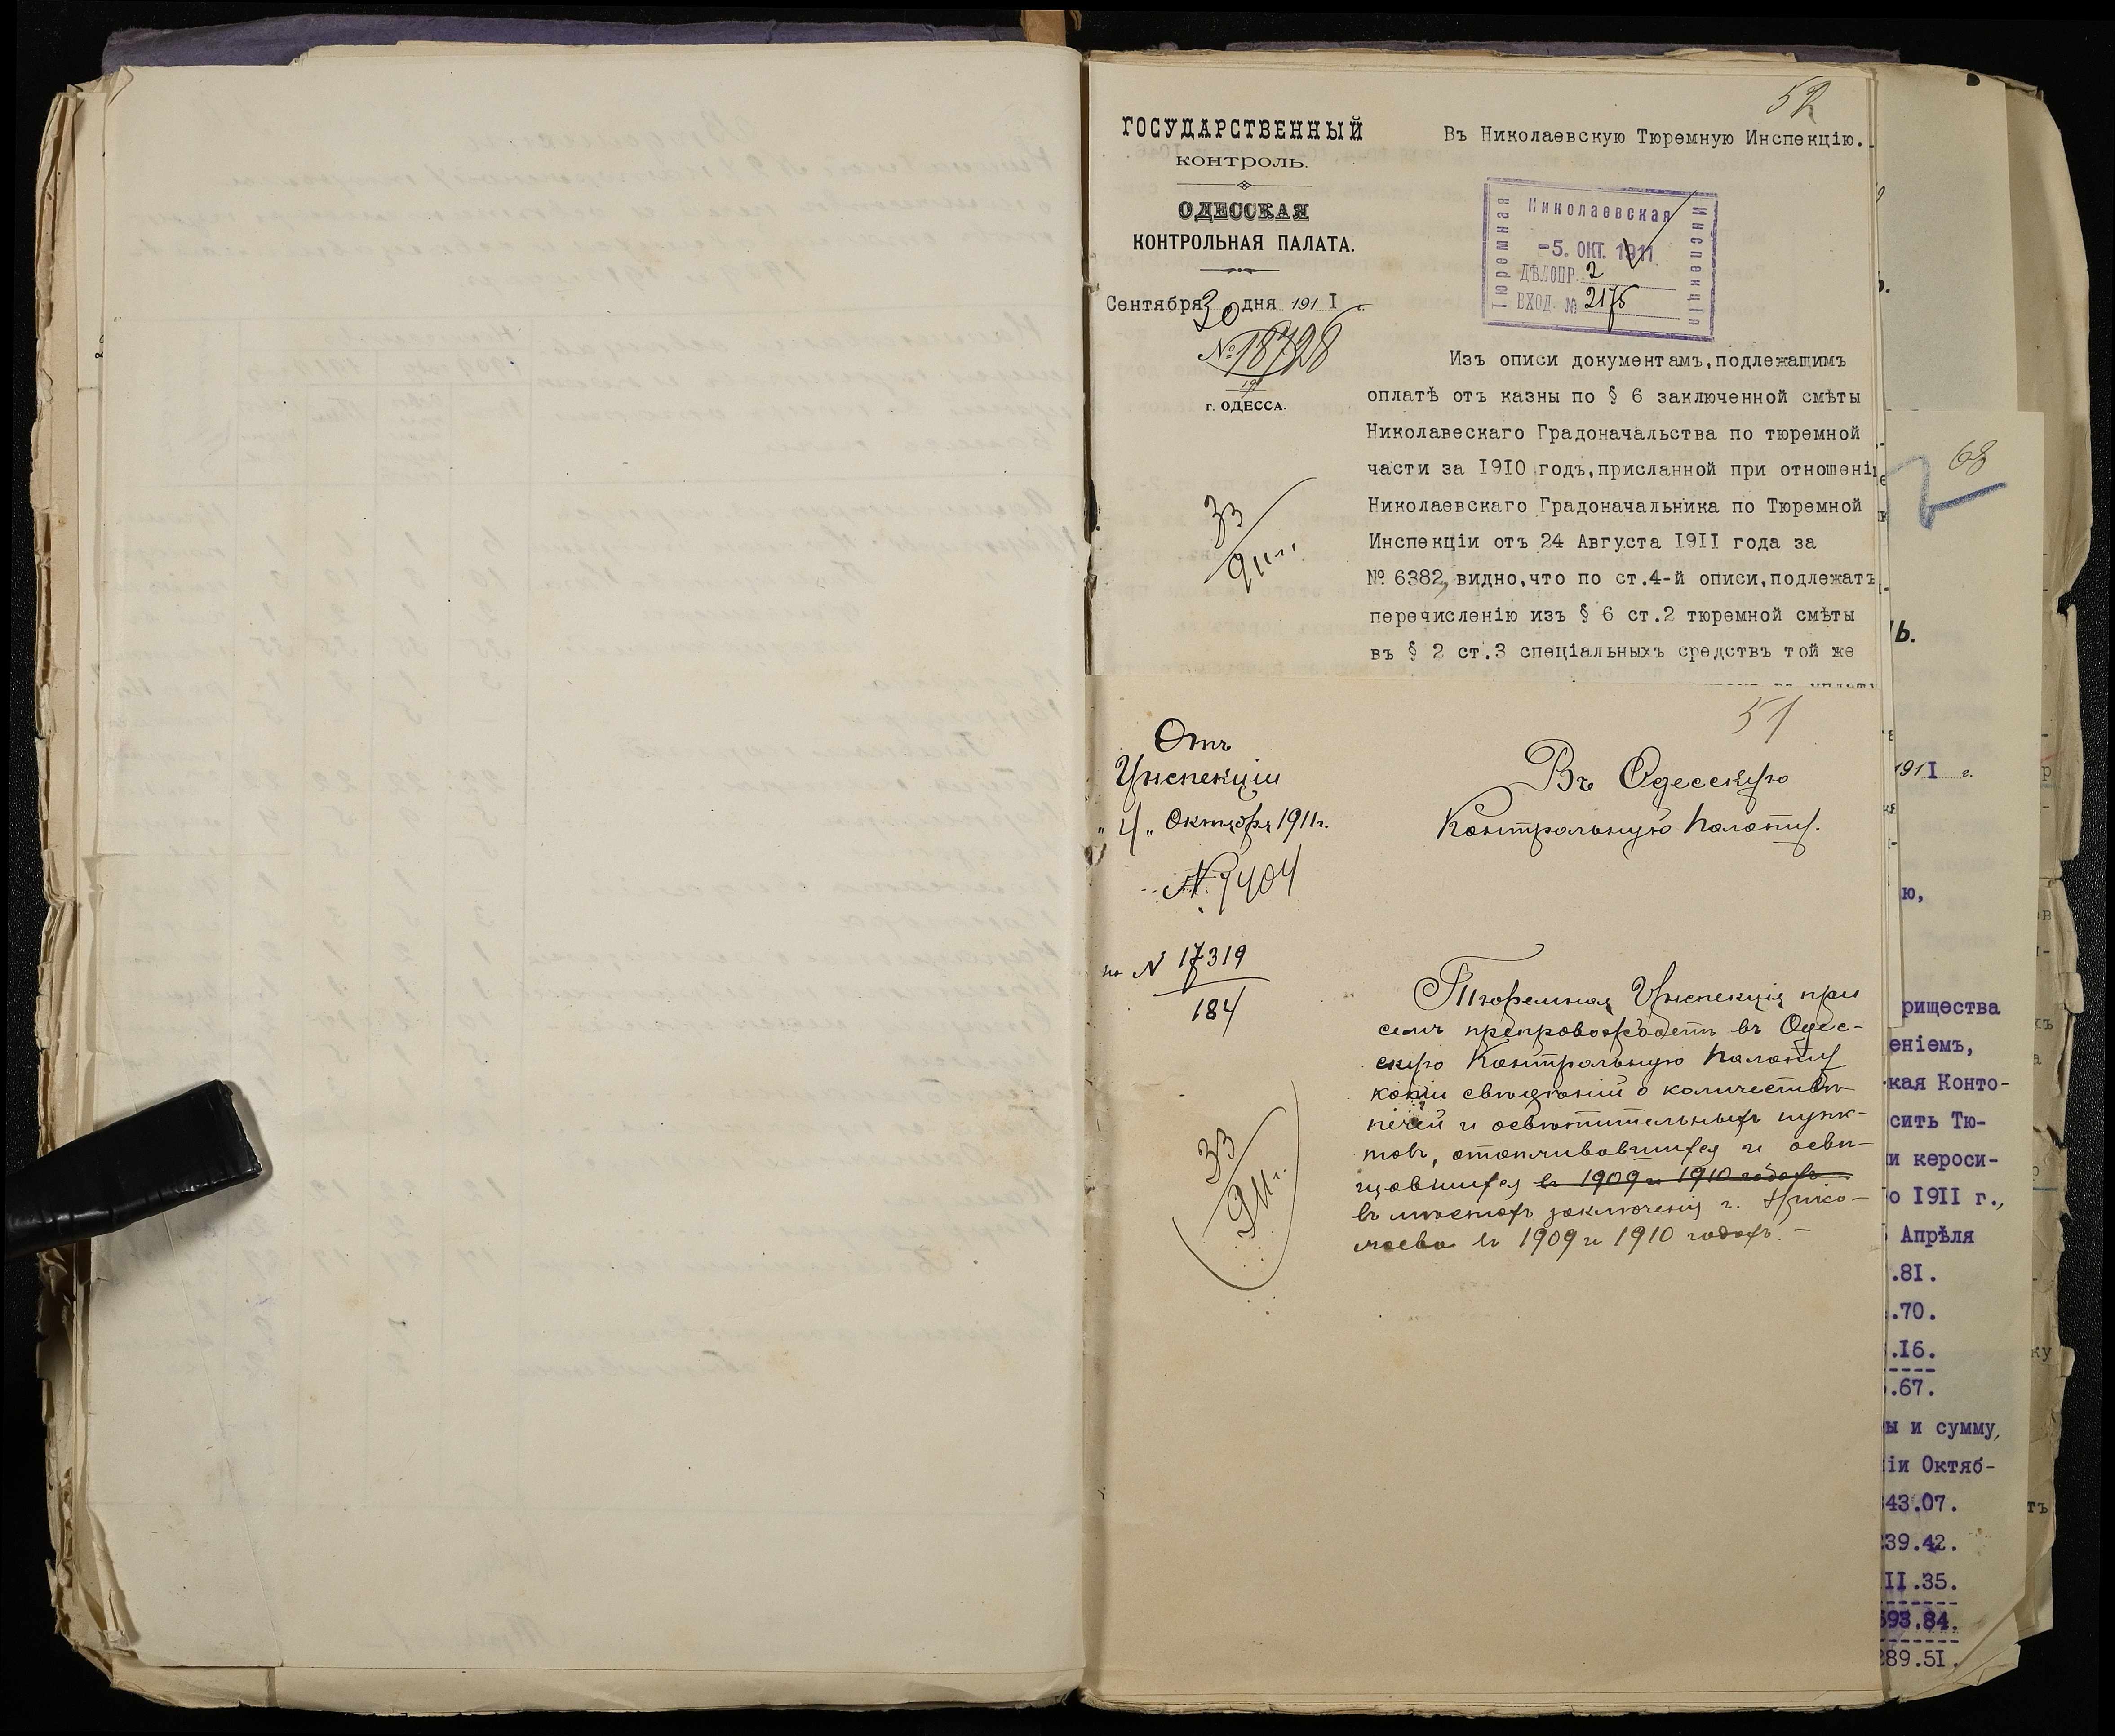 52
ГОСУДАРСТВЕННЫЙ
КОНТРОЛЬ.
ОДЕССКАЯ
КОНТРОЛЬНАЯ ПАЛАТА.
Сентября 30 дня 191 I г.
№ 18728
г. ОДЕССА.
33
911 г.
Въ Николаевскую Тюремную Инспекцію.
Николаевская
Тюремная
Инспекція
-5. ОКТ. 1911
ДѢЛОПР. 2
ВХОД. № 2175
Изъ описи документамъ,подлежащимъ
оплатѣ отъ казны по § 6 заключенной смѣты
Николавескаго Градоначальства по тюремной
части за I9I0 годъ,присланной при отношені
Николаевскаго Градоначальника по Тюремной
Инспекціи отъ 24 Августа I9II года за
№ 6382, видно,что по ст.4-й описи,подлежатъ
перечисленію изъ § 6 ст.2 тюремной смѣты
въ § 2 ст.3 спеціальныхъ средствъ той же
51
Отъ
Инспекціи
"4" Октября 1911 г.
№ 7404
на № 17319
184
33
911 г.
Въ Одесскую
Контрольную Палату.
Тюремная Инспекція при
семъ препровождаетъ въ Одес-
скую Контрольную Палату
копіи свѣдѣній о количествѣ
печей и освѣтительныхъ пунк-
товъ, отапливавшихся и освѣ-
щавшихся въ 1909 и 1910 годахъ
въ мѣстахъ заключенія г. Нико-
лаева въ 1909 и 1910 годахъ.-
68
Ь.
191 I г.
ю,
рищества
еніемъ,
кая Конто-
сить Тю-
и кероси-
о I9II г.,
Апрѣля
.8I.
.70.
.I6.
.67.
ы и сумму,
іи Октяб-
43.07.
39.42.
II.35.
693.84.
89.5I.